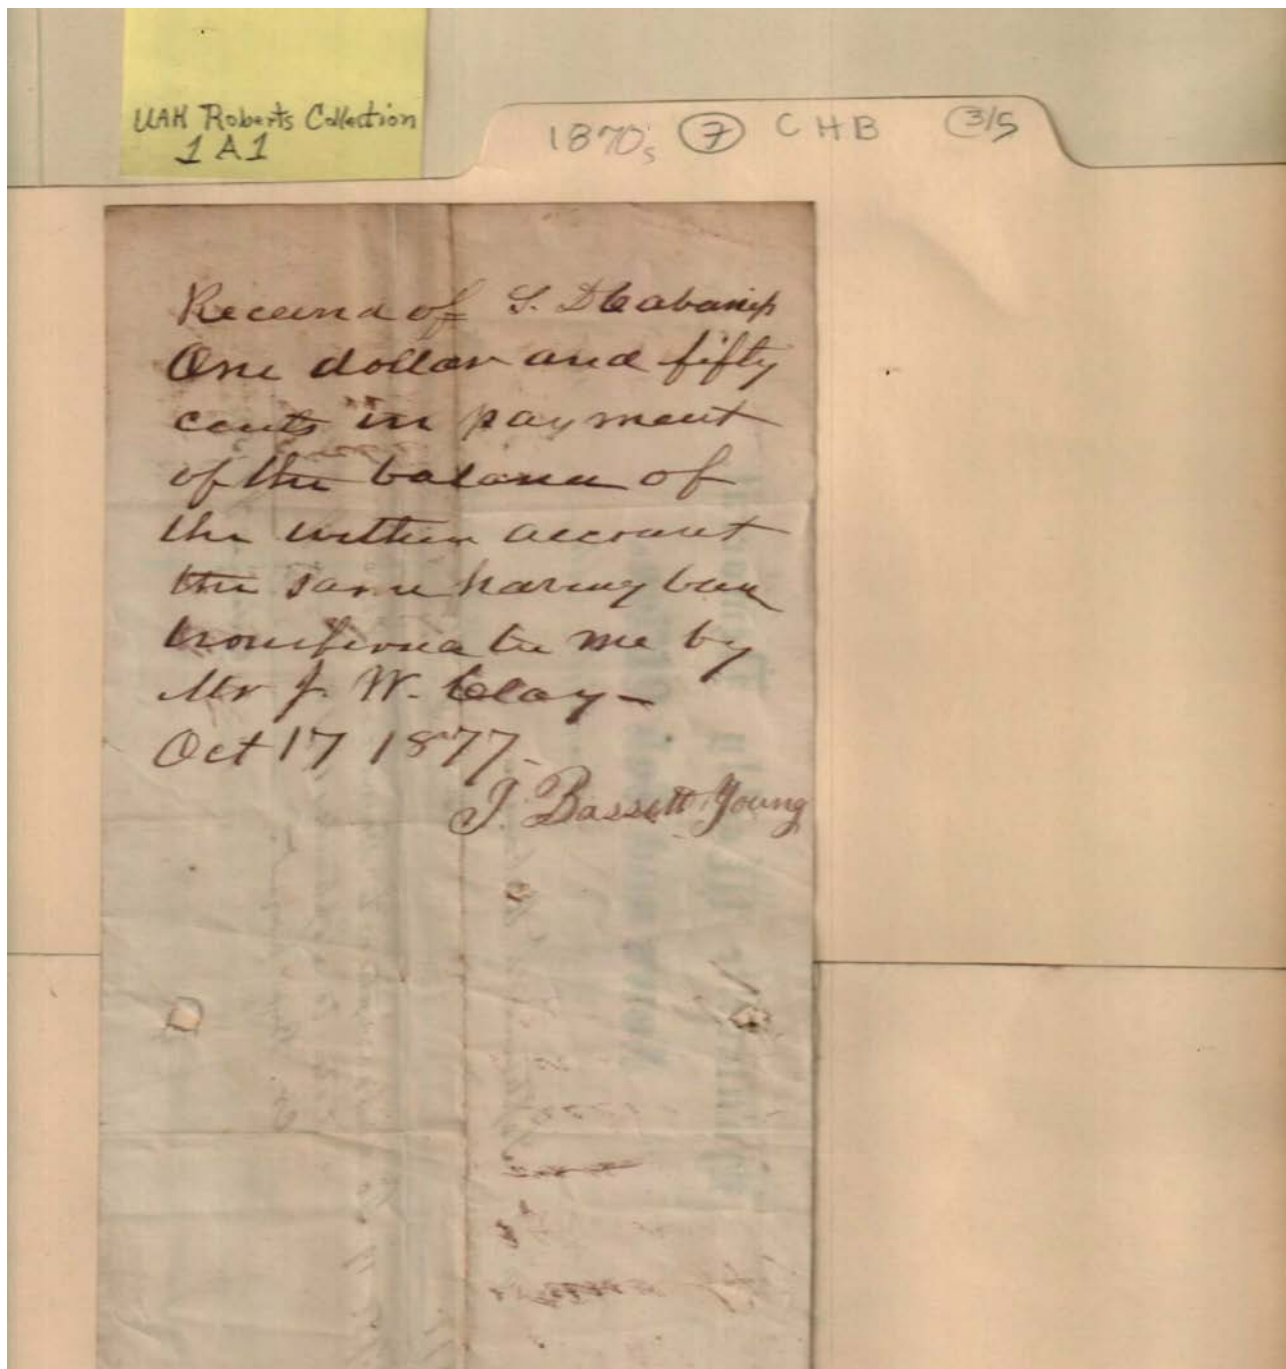 UAH Roberts Collection
1A1
1870s 7 CHB 3/5
Received of S. D Cabaniss
One dollar and fifty
cents in payment
of the balance of
the within account
the same having been
transferred to me by
Mr J. W. Clay-
Oct 17 1877-
J. Bassett Young